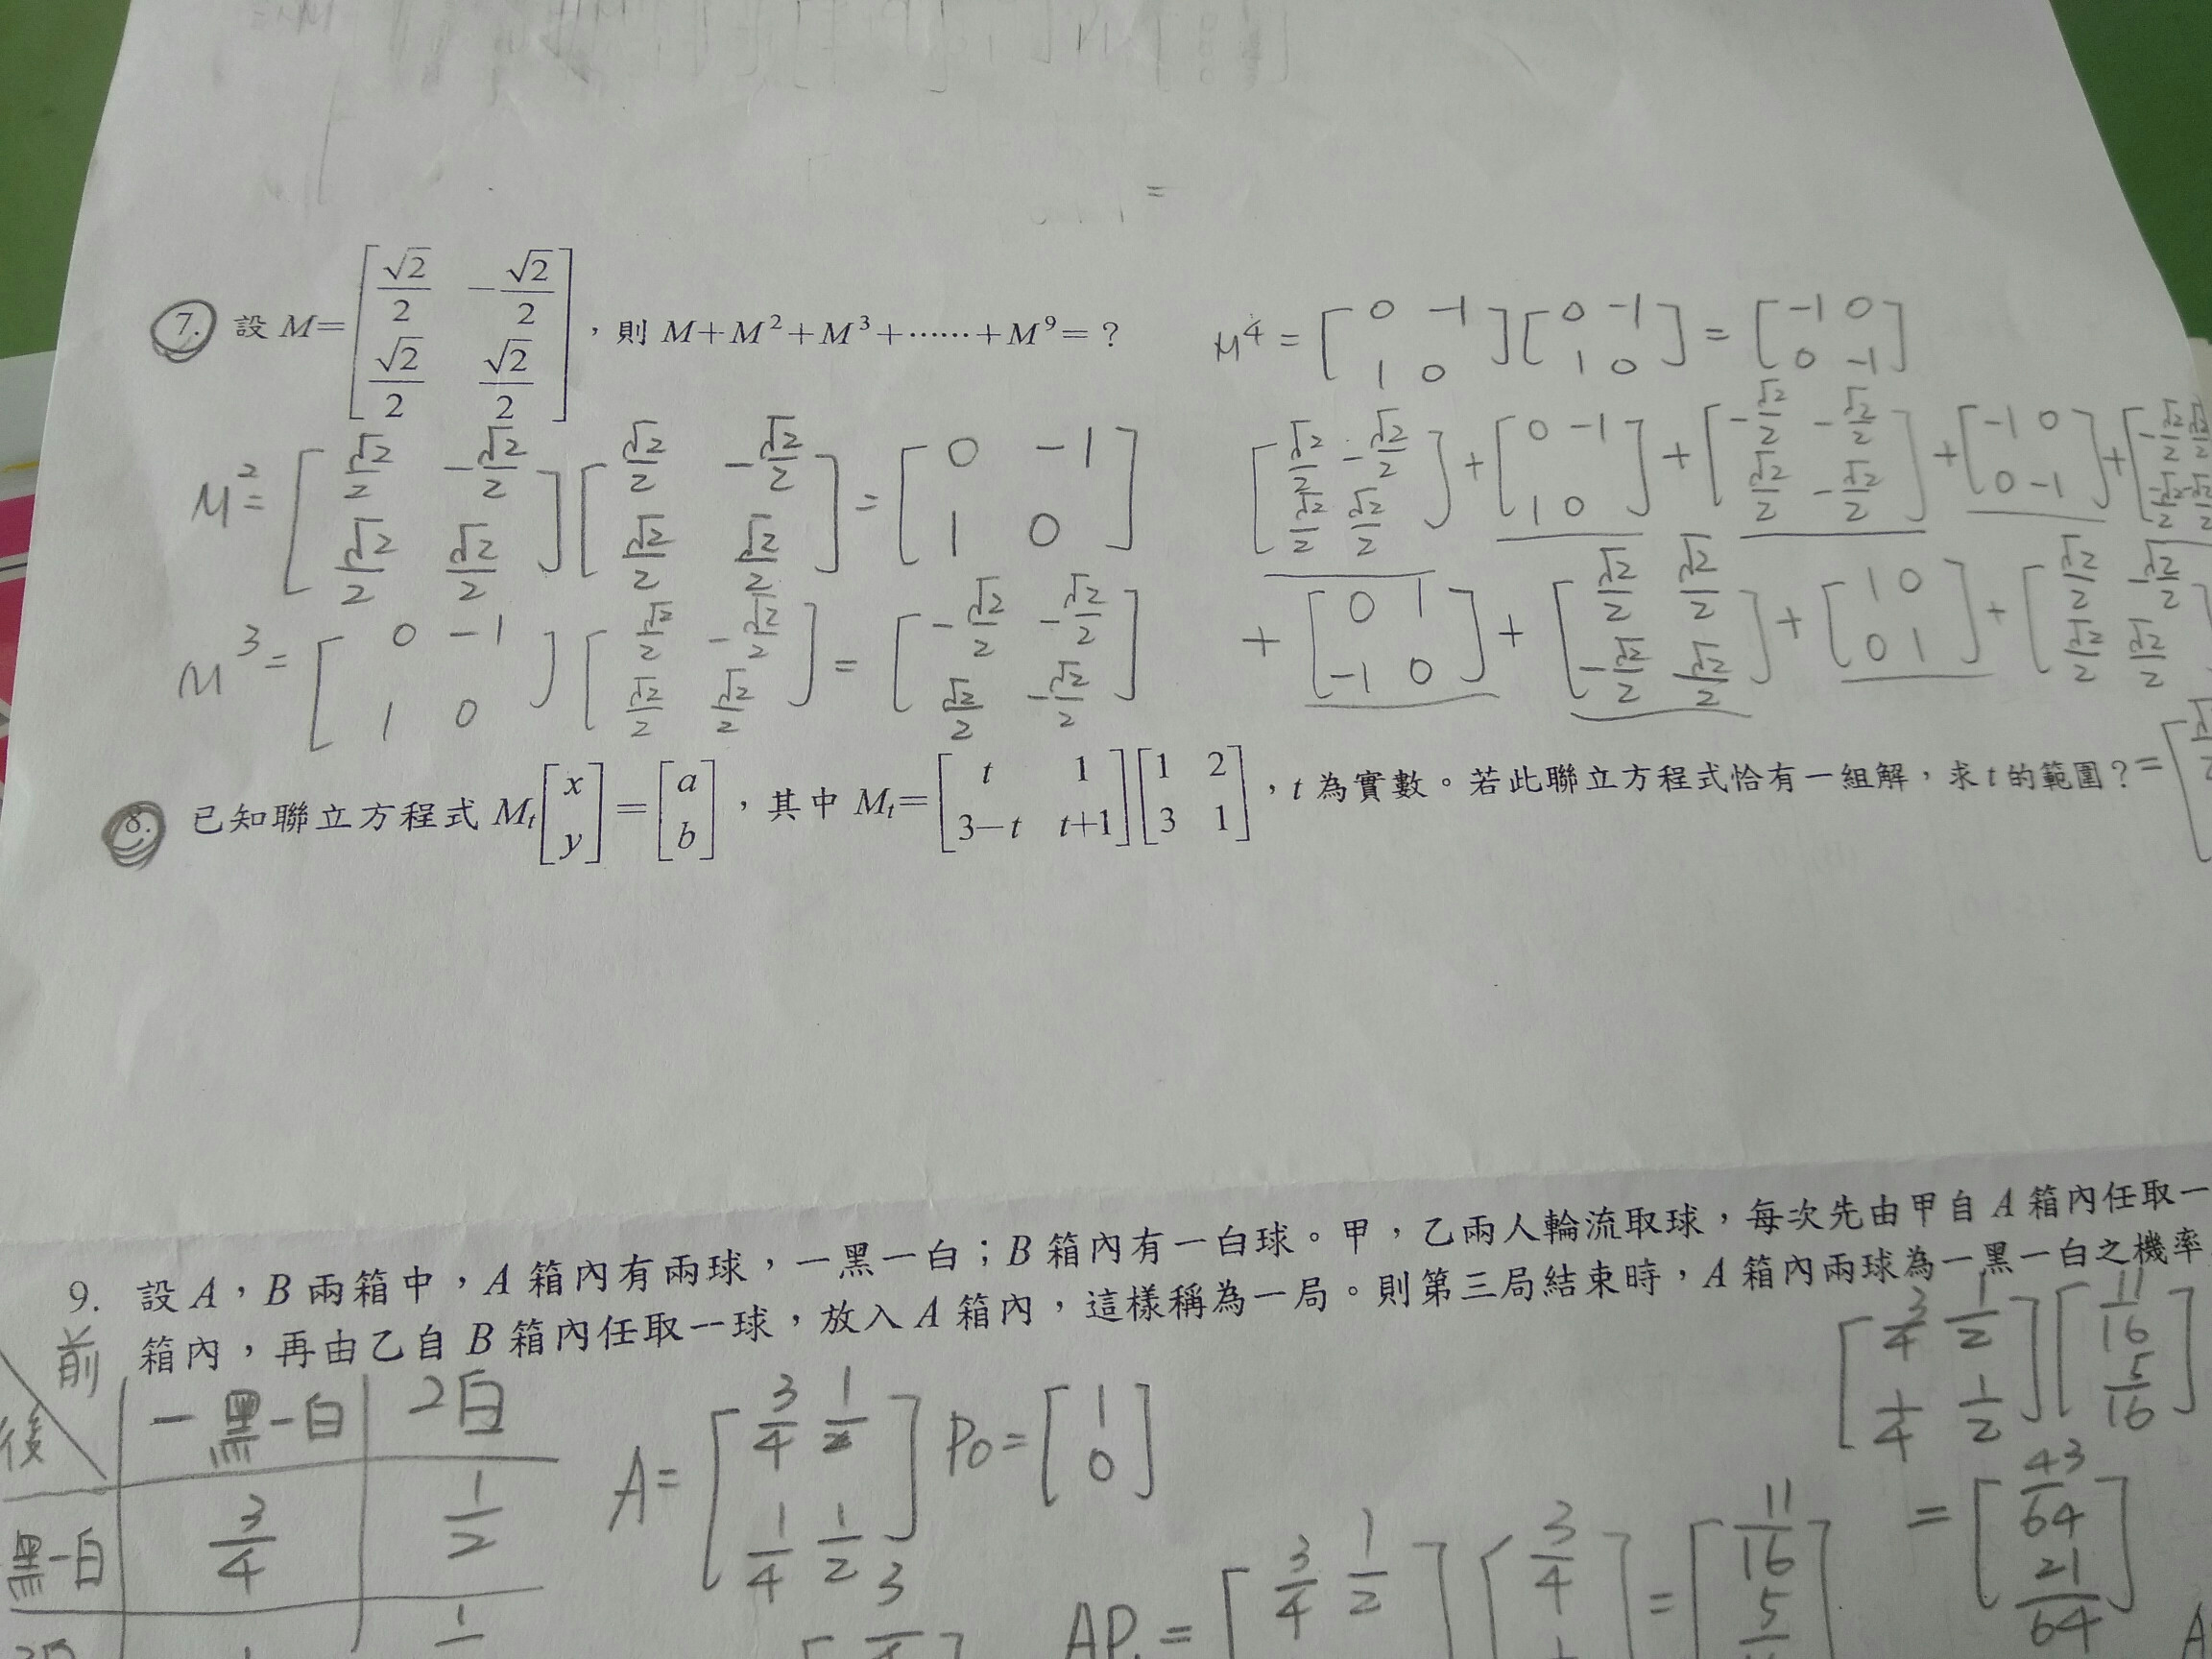 7. 設 M=[√2/2 -√2/2; √2/2 √2/2],則 M+M²+M³+……+M⁹=?
M⁴=[0 -1; 1 0][0 -1; 1 0]=[-1 0; 0 -1]
M²=[√2/2 -√2/2; √2/2 √2/2][√2/2 -√2/2; √2/2 √2/2]=[0 -1; 1 0]
M³=[0 -1; 1 0][√2/2 -√2/2; √2/2 √2/2]=[-√2/2 -√2/2; √2/2 -√2/2]
[√2/2 -√2/2; √2/2 √2/2]+[0 -1; 1 0]+[-√2/2 -√2/2; √2/2 -√2/2]+[-1 0; 0 -1]+
+[0 1; -1 0]+[√2/2 √2/2; -√2/2 √2/2]+[1 0; 0 1]+[√2/2 -√2/2; √2/2 √2/2]
=[
8. 已知聯立方程式 Mt[x; y]=[a; b],其中 Mt=[t 1; 3-t t+1][1 2; 3 1],t 為實數。若此聯立方程式恰有一組解,求 t 的範圍?
9. 設 A,B 兩箱中,A 箱內有兩球,一黑一白;B 箱內有一白球。甲,乙兩人輪流取球,每次先由甲自 A 箱內任取一
箱內,再由乙自 B 箱內任取一球,放入 A 箱內,這樣稱為一局。則第三局結束時,A 箱內兩球為一黑一白之機率
前
後
一黑一白 2白
黑一白 3/4 1/2
A=[3/4 1/2; 1/4 1/2] P0=[1; 0]
[3/4 1/2; 1/4 1/2][11/16; 5/16]
=[43/64; 21/64]